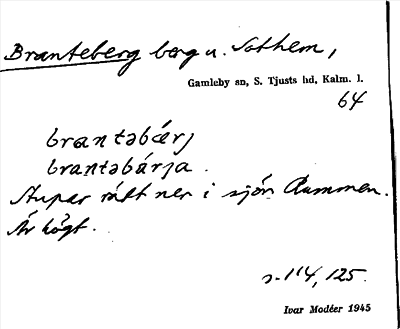 Branteberg berg u. Sothem,
Gamleby sn, S. Tjusts hd, Kalm. l.
64
brantəbærj
brantəbárja.
Stupar rätt ner i sjön Rummen.
Är högt.
s. 114, 125.
Ivar Modéer 1945